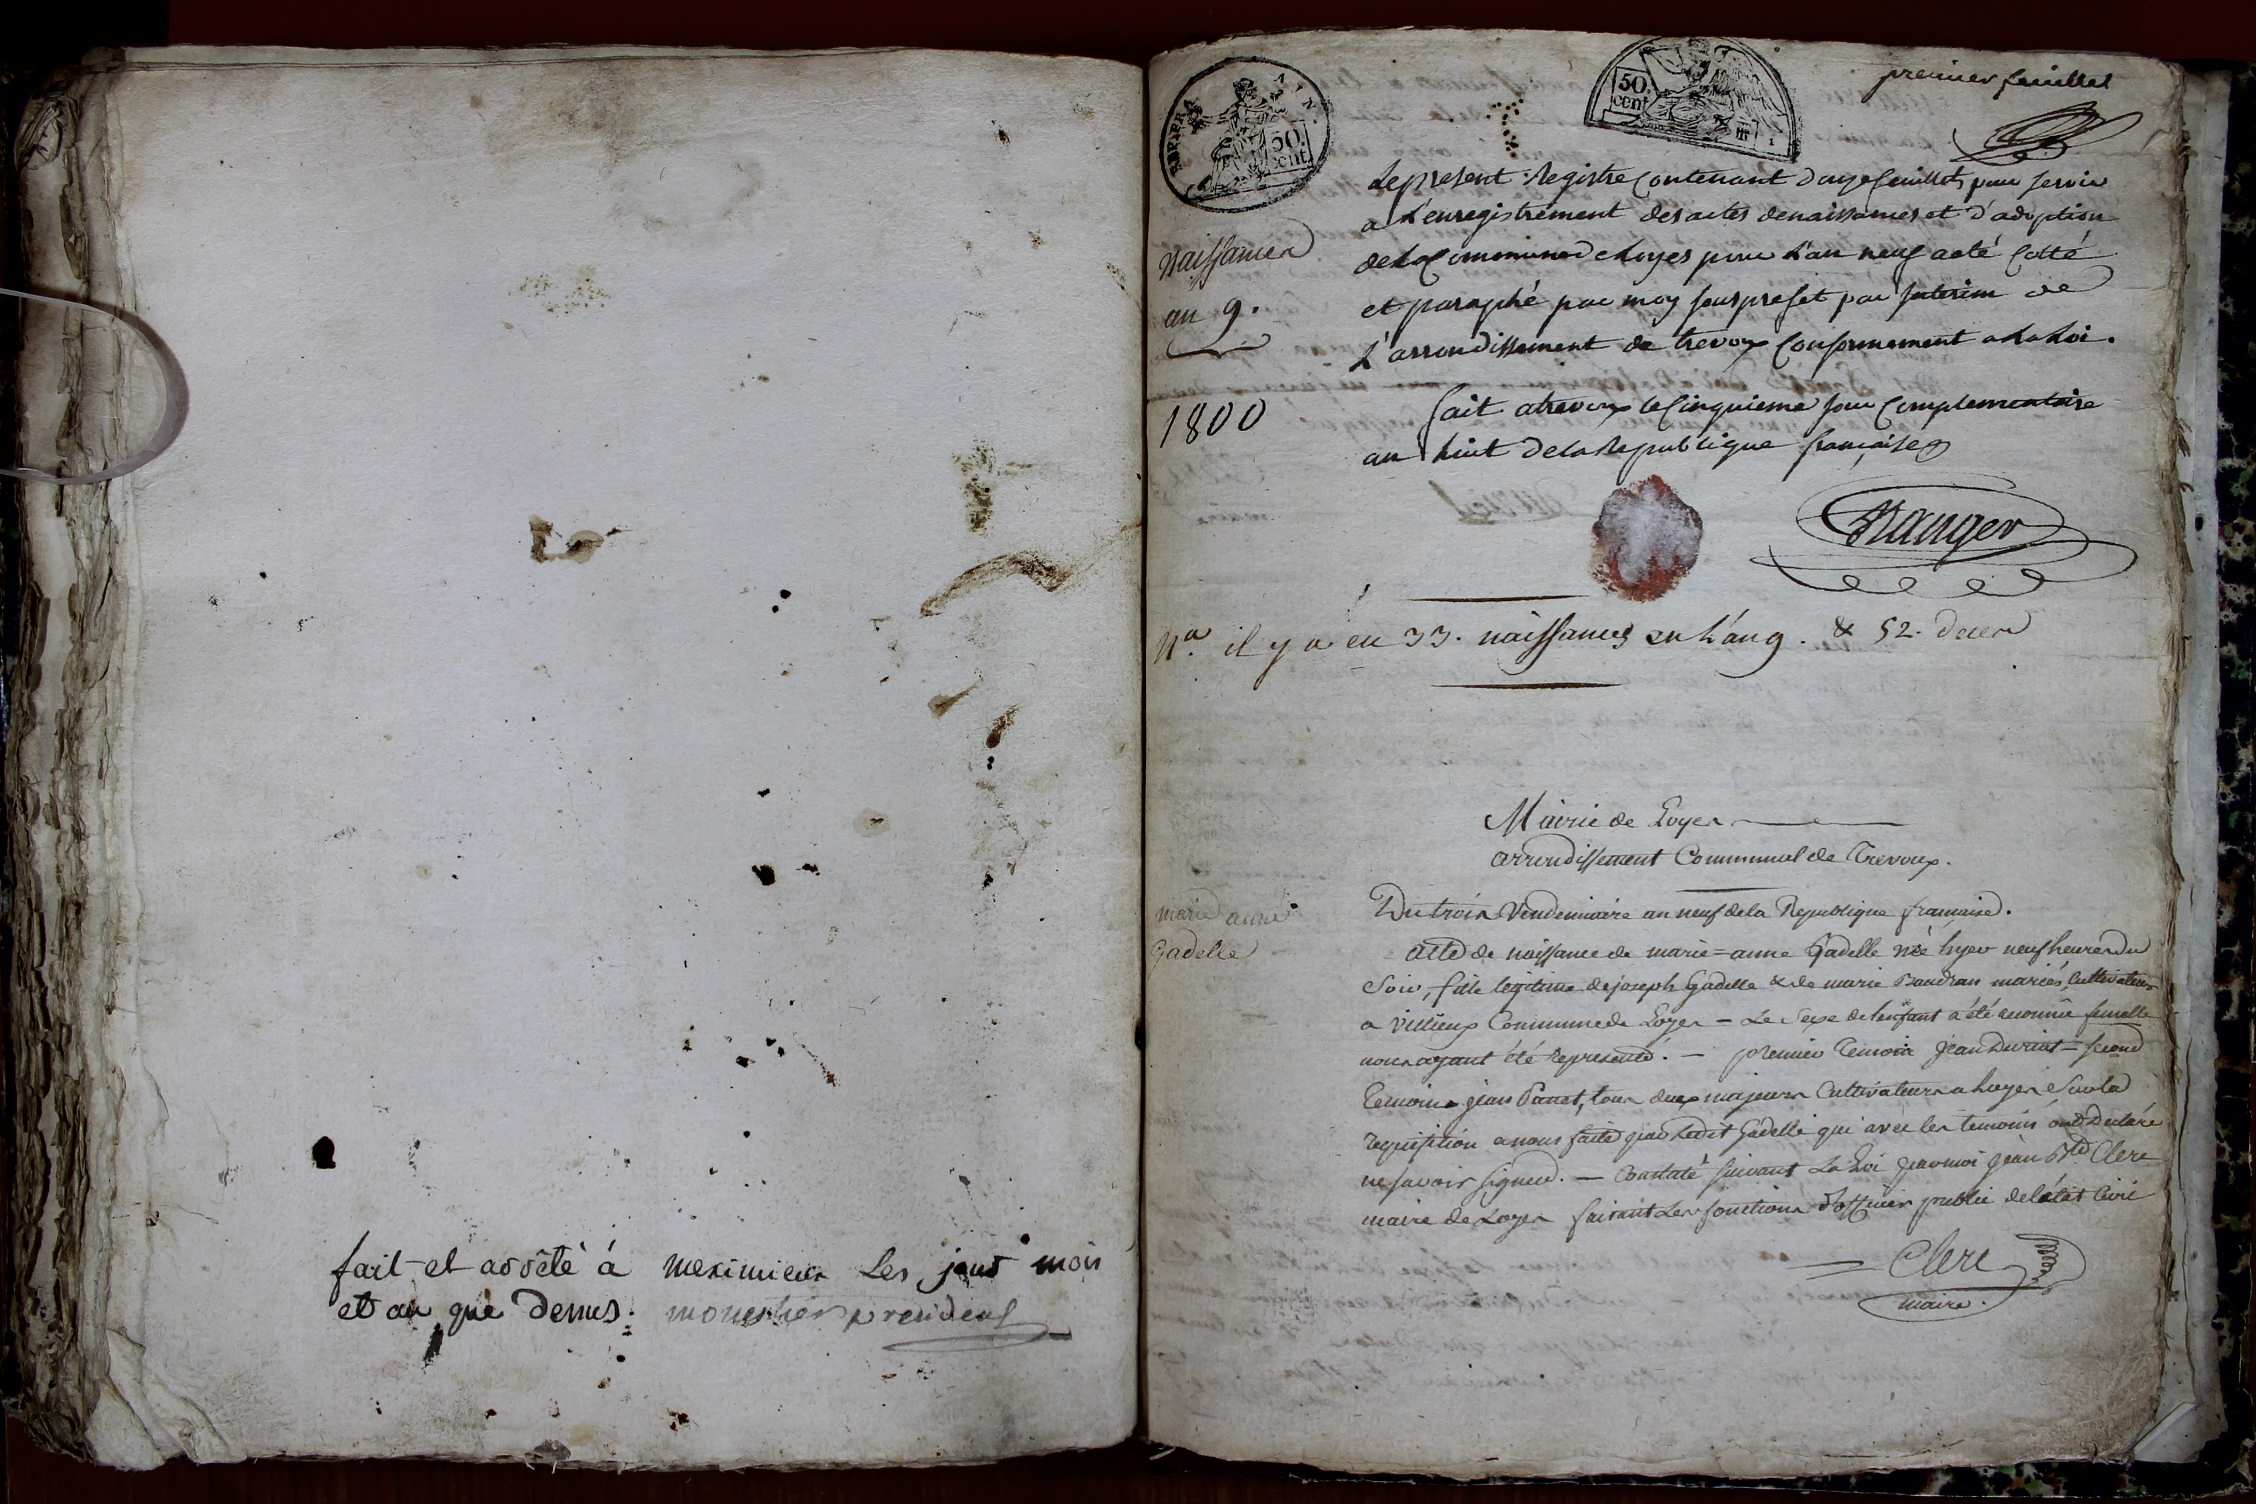 fait et arrêté à meximieux les jour mois
et an que dessus. president
premier feuillet
REP. FRA.
AIN.
50 cent.
50. cent
Naissances
an 9.
1800
Le present Registre contenant douze feuillets pour servir
a L'enregistrement des actes de naissances et d'adoption
de La Commune de Loyes pour L'an neuf a eté Cotté
et paraphé par moy sousprefet par Interim de
L'arrondissement de trevoux Conformement a La Loi.
fait a trevoux le Cinquieme jour Complementaire
an huit de la Republique française
Nauger
Na. il y a eu 33. naissances en L'an 9. & 52. deces
Mairie de Loyes
arrondissement Communal de Trevoux.
marie anne
Gadelle
Du trois Vendemiaire an neuf de la Republique française.
acte de naissance de marie=anne Gadelle née hyer neuf heures du
Soir, fille legitime de joseph Gadelle & de marie Baudran mariés, Cultivateurs
a Villieux Commune de Loyes – Le Sexe de l'enfant a été reconnu femelle
nous ayant été representé. – premier Temoin jean Durand – second
Temoin jean Panet, tous deux majeurs Cultivateurs a Loyes Sur la
requisition a nous faite par Ledit Gadelle qui avec les temoins ont declaré
ne savoir signer. – Constaté suivant La Loi par moi jean Bte Clerc
maire de Loyes faisant Les fonctions d'officier public de l'état Civil
Clerc
maire.